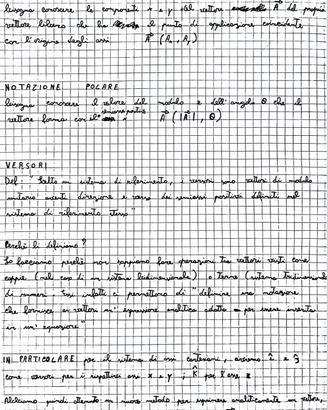 bisogna conoscere le componenti x e y del vettore A del proprio
vettore libero che ha il punto di applicazione coincidente
con l'origine degli assi A (Ax, Ay)
NOTAZIONE POLARE
bisogna conoscere il valore del modulo e dell'angolo θ che il
vettore forma con il semiasse A (|A|, θ)
VERSORI
Def: "Fatto un sistema di riferimento, i versori sono vettori di modulo
unitario aventi direzione e verso dei semiassi positivi definiti nel
sistema di riferimento stesso"
Perché li definiamo?
Lo facciamo perché non sappiamo fare operazioni tra vettori scritti come
coppie (nel caso di un sistema bidimensionale) o terne (sistema tridimensionale)
di numeri. Essi infatti ci permettono di "definire una notazione
che fornisca ai vettori un'espressione analitica adatta per essere inserita
in un'equazione"
IN PARTICOLARE per il sistema di assi cartesiani, avremo î e ĵ
come versori per i rispettivi assi x e y; k̂ per l'asse z
Abbiamo quindi ottenuto un nuovo metodo per esprimere analiticamente un vettore,